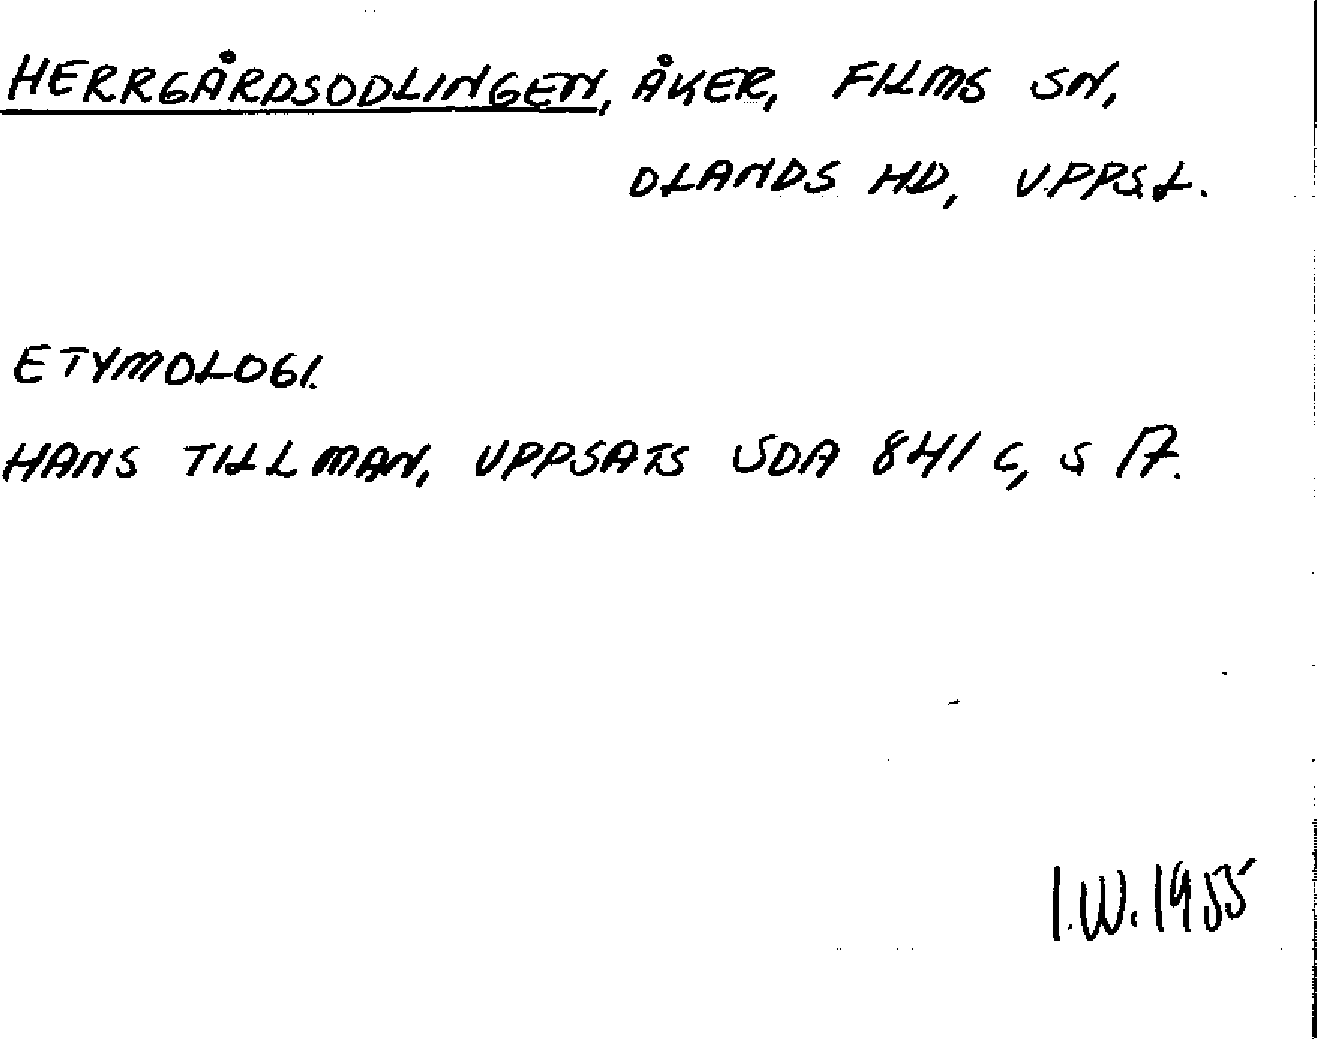 HERRGÅRDSODLINGEN, ÅKER, FILMS SN,
OLANDS HD, UPPS.L.
ETYMOLOGI.
HANS TILLMAN, UPPSATS SOA 841 C, S 17.
I.W. 1955